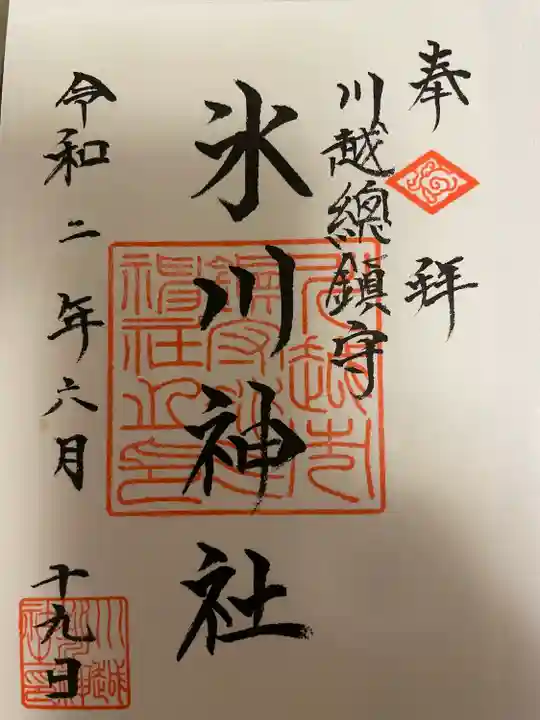 奉拜
川越總鎮守
氷川神社
令和二年六月十九日